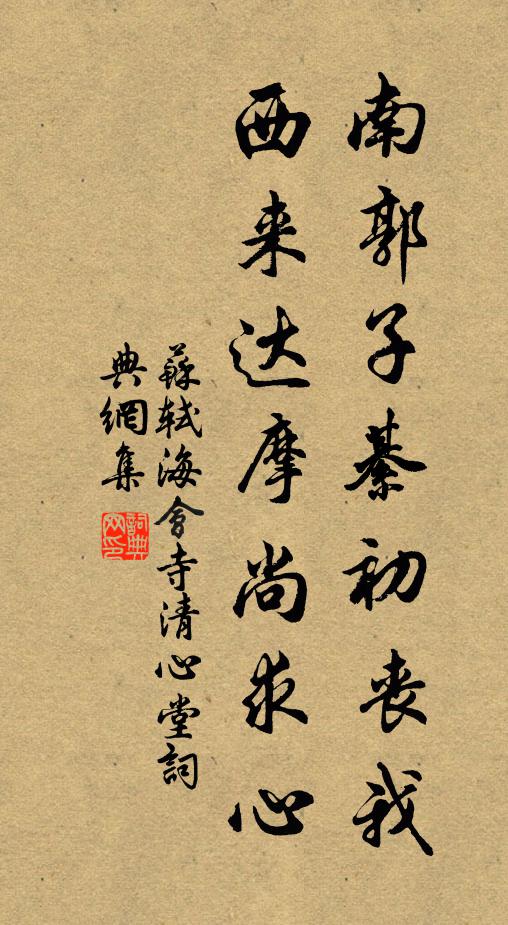 南郭子綦初丧我
西来达摩尚求心
蘇軾海會寺清心堂詞
典網集
詞典网印